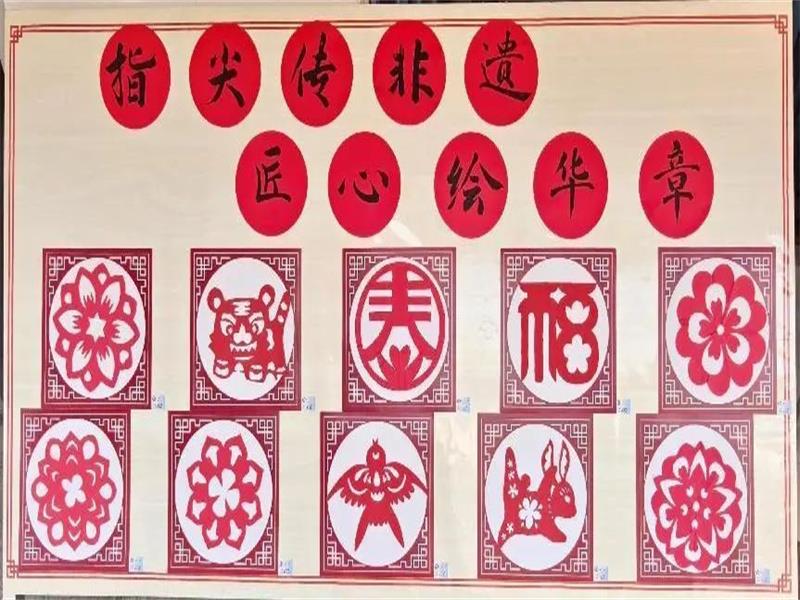 指尖传非遗
匠心绘华章
春
福